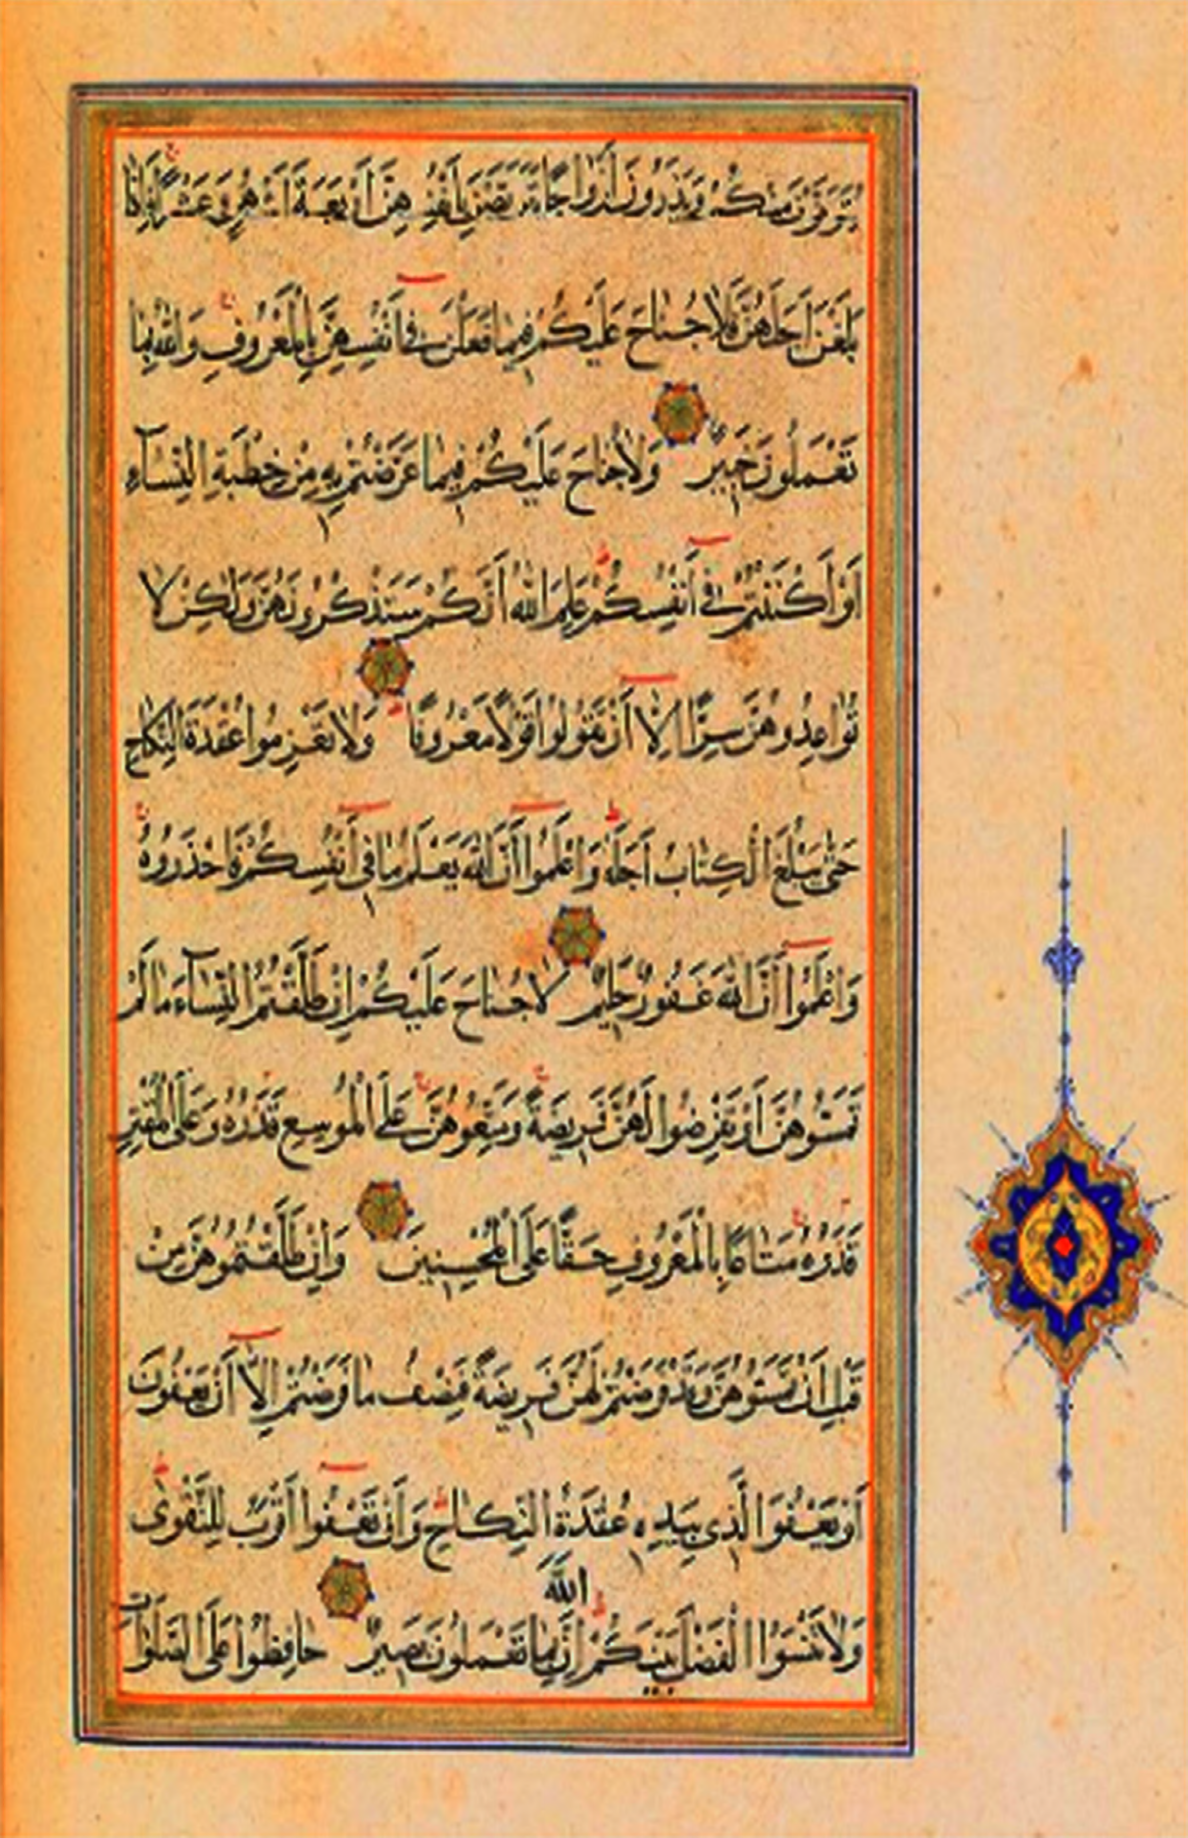 يُتَوَفَّوْنَ مِنْكُمْ وَيَذَرُونَ أَزْوَاجًا يَتَرَبَّصْنَ بِأَنْفُسِهِنَّ أَرْبَعَةَ أَشْهُرٍ وَعَشْرًا فَإِذَا
بَلَغْنَ أَجَلَهُنَّ فَلَا جُنَاحَ عَلَيْكُمْ فِيمَا فَعَلْنَ فِي أَنْفُسِهِنَّ بِالْمَعْرُوفِ وَاللَّهُ بِمَا
تَعْمَلُونَ خَبِيرٌ وَلَا جُنَاحَ عَلَيْكُمْ فِيمَا عَرَّضْتُمْ بِهِ مِنْ خِطْبَةِ النِّسَاءِ
أَوْ أَكْنَنْتُمْ فِي أَنْفُسِكُمْ عَلِمَ اللَّهُ أَنَّكُمْ سَتَذْكُرُونَهُنَّ وَلَٰكِنْ لَا
تُوَاعِدُوهُنَّ سِرًّا إِلَّا أَنْ تَقُولُوا قَوْلًا مَعْرُوفًا وَلَا تَعْزِمُوا عُقْدَةَ النِّكَاحِ
حَتَّىٰ يَبْلُغَ الْكِتَابُ أَجَلَهُ وَاعْلَمُوا أَنَّ اللَّهَ يَعْلَمُ مَا فِي أَنْفُسِكُمْ فَاحْذَرُوهُ
وَاعْلَمُوا أَنَّ اللَّهَ غَفُورٌ حَلِيمٌ لَا جُنَاحَ عَلَيْكُمْ إِنْ طَلَّقْتُمُ النِّسَاءَ مَا لَمْ
تَمَسُّوهُنَّ أَوْ تَفْرِضُوا لَهُنَّ فَرِيضَةً وَمَتِّعُوهُنَّ عَلَى الْمُوسِعِ قَدَرُهُ وَعَلَى الْمُقْتِرِ
قَدَرُهُ مَتَاعًا بِالْمَعْرُوفِ حَقًّا عَلَى الْمُحْسِنِينَ وَإِنْ طَلَّقْتُمُوهُنَّ مِنْ
قَبْلِ أَنْ تَمَسُّوهُنَّ وَقَدْ فَرَضْتُمْ لَهُنَّ فَرِيضَةً فَنِصْفُ مَا فَرَضْتُمْ إِلَّا أَنْ يَعْفُونَ
أَوْ يَعْفُوَا الَّذِي بِيَدِهِ عُقْدَةُ النِّكَاحِ وَأَنْ تَعْفُوا أَقْرَبُ لِلتَّقْوَىٰ
اللَّهَ
وَلَا تَنْسَوُا الْفَضْلَ بَيْنَكُمْ إِنَّ بِمَا تَعْمَلُونَ بَصِيرٌ حَافِظُوا عَلَى الصَّلَوَاتِ